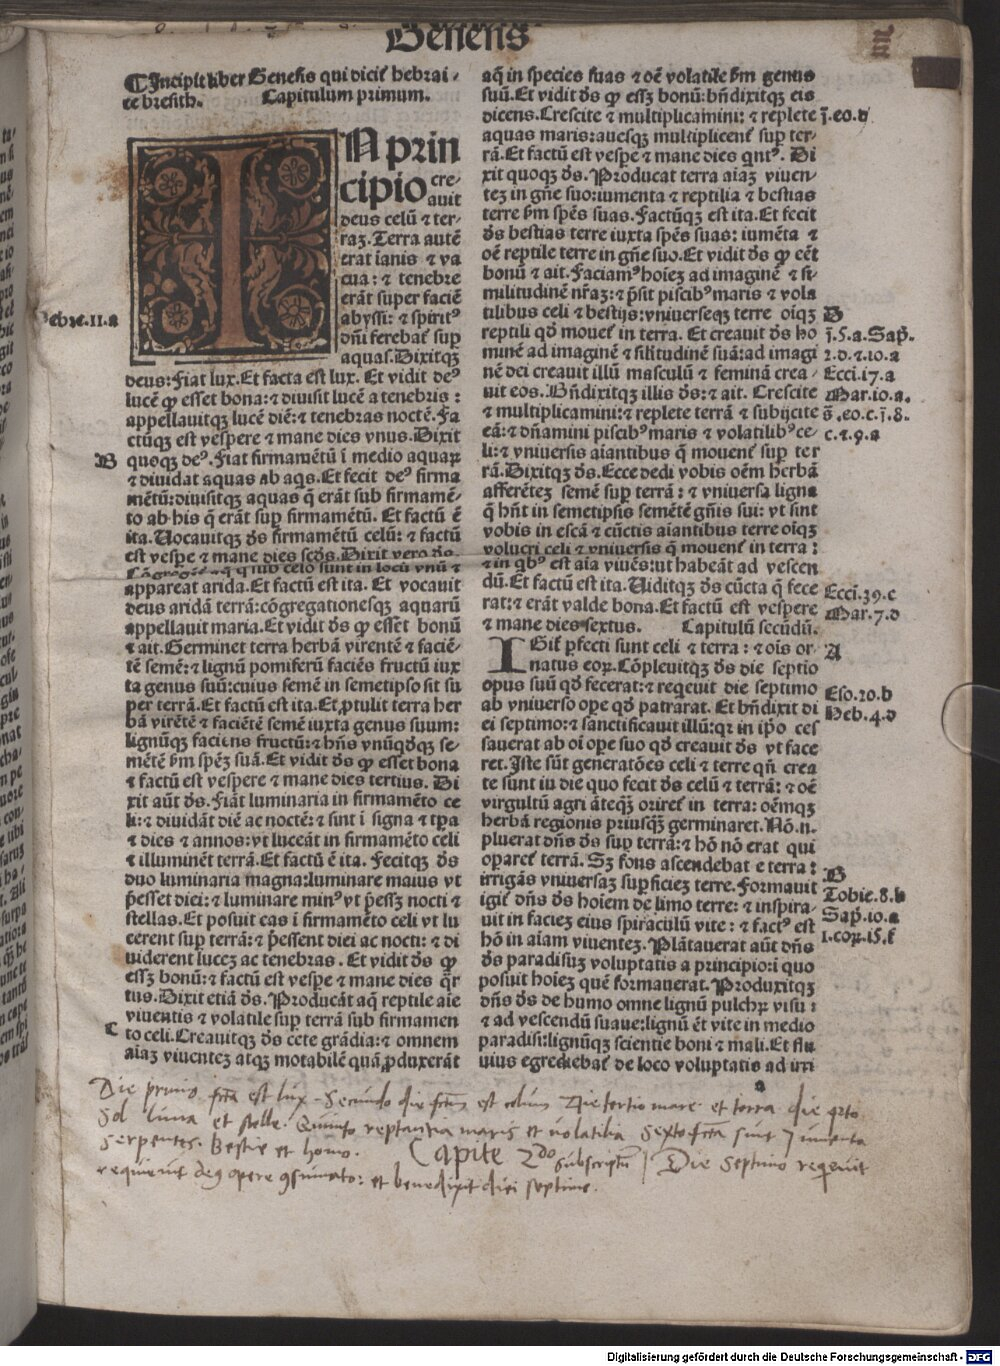 Genesis
¶Incipit liber Genesis qui dicit᷑ hebrai-
ce bresith. Capitulum primum.
IN prin
cipio cre-
auit
deus celū ⁊ ter-
raꝫ. Terra autē
erat inanis ⁊ va
cua: ⁊ tenebre
erāt super faciē
abyssi: ⁊ spiritꝰ
dn̄i ferebat᷑ sup̄
aquas. Dixitqꝫ
deus: Fiat lux. Et facta est lux. Et vidit deꝰ
lucē ꝙ esset bona: ⁊ diuisit lucē a tenebris:
appellauitqꝫ lucē diē: ⁊ tenebras noctē. Fa
ctūqꝫ est vespere ⁊ mane dies vnus. Dixit
quoqꝫ deꝰ. Fiat firmamētū ī medio aquaꝝ
⁊ diuidat aquas ab aqs. Et fecit deꝰ firma
mētū: diuisitqꝫ aquas q̄ erāt sub firmamē-
to ab his q̄ erāt sup̄ firmamētū. Et factū ē
ita. Vocauitqꝫ ds̄ firmamētū celū: ⁊ factū
est vesp̄e ⁊ mane dies scds̄. Dixit vero ds̄.
Cōgregēt᷑ aq̄ q̄ sub celo sunt in locū vnū ⁊
appareat arida. Et factū est ita. Et vocauit
deus aridā terrā: cōgregationesqꝫ aquarū
appellauit maria. Et vidit ds̄ ꝙ esset bonū
⁊ ait. Germinet terra herbā virentē ⁊ faciē-
tē semē: ⁊ lignū pomiferū faciēs fructū iux
ta genus suū: cuius semē in semetipso sit su
per terrā. Et factū est ita. Et ꝓtulit terra her
bā virētē ⁊ faciētē semē iuxta genus suum:
lignūqꝫ faciens fructū: ⁊ hn̄s vnūqd̄qꝫ se-
mētē ẜm spēꝫ suā. Et vidit ds̄ ꝙ esset bona
⁊ factū est vespere ⁊ mane dies tertius. Di
xit aūt ds̄. Fiāt luminaria in firmamēto ce
li: ⁊ diuidāt diē ac noctē: ⁊ sint ī signa ⁊ tp̄a
⁊ dies ⁊ annos: vt luceāt in firmamēto celi
⁊ illuminēt terrā. Et factū ē ita. Fecitqꝫ ds̄
duo luminaria magna: luminare maius vt
p̄esset diei: ⁊ luminare minꝰ vt p̄esset nocti ⁊
stellas. Et posuit eas ī firmamēto celi vt lu
cerent sup̄ terrā: ⁊ p̄essent diei ac nocti: ⁊ di
uiderent lucē ac tenebras. Et vidit ds̄ ꝙ
essꝫ bonū: ⁊ factū est vesp̄e ⁊ mane dies qr̄
tus. Dixit etiā ds̄. Producāt aq̄ reptile aīe
viuentis ⁊ volatile sup̄ terrā sub firmamen
to celi. Creauitqꝫ ds̄ cete grādia: ⁊ omnem
aīaꝫ viuenteꝫ atqꝫ motabilē quā ꝓduxerāt
aq̄ in species suas ⁊ oē volatile ẜm genus
suū. Et vidit ds̄ ꝙ essꝫ bonū: bn̄dixitqꝫ eis
dicens. Crescite ⁊ multiplicamini: ⁊ replete
aquas maris: auesqꝫ multiplicent᷑ sup̄ ter-
rā. Et factū est vesp̄e ⁊ mane dies qntꝰ. Di
xit quoqꝫ ds̄. Producat terra aīaꝫ viuen-
teꝫ in gn̄e suo: iumenta ⁊ reptilia ⁊ bestias
terre ẜm spēs suas. Factūqꝫ est ita. Et fecit
ds̄ bestias terre iuxta spēs suas: iumēta ⁊
oē reptile terre in gn̄e suo. Et vidit ds̄ ꝙ eēt
bonū ⁊ ait. Faciamꝰ hoīeꝫ ad imaginē ⁊ si-
militudinē nr̄aꝫ: ⁊ p̄sit piscibꝰ maris ⁊ vola
tilibus celi ⁊ bestijs: vniuerseqꝫ terre oīqꝫ
reptili qd̄ mouet᷑ in terra. Et creauit ds̄ ho
minē ad imaginē ⁊ sīlitudinē suā: ad imagi
nē dei creauit illū masculū ⁊ feminā crea-
uit eos. Bn̄dixitqꝫ illis ds̄: ⁊ ait. Crescite
⁊ multiplicamini: ⁊ replete terrā ⁊ subijcite
eā: ⁊ dn̄amini piscibꝰ maris ⁊ volatilibꝰ ce-
li: ⁊ vniuersis aīantibus q̄ mouent᷑ sup̄ ter
rā. Dixitqꝫ ds̄. Ecce dedi vobis oēm herbā
afferēteꝫ semē sup̄ terrā: ⁊ vniuersa ligna
q̄ hn̄t in semetipsis semētē gn̄is sui: vt sint
vobis in escā ⁊ cūctis aīantibus terre oīqꝫ
volucri celi ⁊ vniuersis q̄ mouent᷑ in terra:
⁊ in qbꝰ est aīa viuēs: vt habeāt ad vescen
dū. Et factū est ita. Viditqꝫ ds̄ cūcta q̄ fece
rat: ⁊ erāt valde bona. Et factū est vespere
⁊ mane dies sextus. Capitulū secūdū.
IGit᷑ p̄fecti sunt celi ⁊ terra: ⁊ oīs or-
natus eoꝝ. Cōpleuitqꝫ ds̄ die septīo
opus suū qd̄ fecerat: ⁊ reqeuit die septimo
ab vniuerso ope qd̄ patrarat. Et bn̄dixit di
ei septimo: ⁊ sanctificauit illū: qꝛ in ip̄o ces
sauerat ab oī ope suo qd̄ creauit ds̄ vt face
ret. Iste sūt generatōes celi ⁊ terre qn̄ crea
te sunt in die quo fecit ds̄ celū ⁊ terrā: ⁊ oē
virgultū agri āteqꝫ oriret᷑ in terra: oēmqꝫ
herbā regionis priusqꝫ germinaret. Nō.n.
pluerat dn̄s ds̄ sup̄ terrā: ⁊ hō nō erat qui
oparet᷑ terrā. Sꝫ fons ascendebat e terra:
irrigās vniuersaꝫ sup̄ficieꝫ terre. Formauit
igit᷑ dn̄s ds̄ hoīem de limo terre: ⁊ inspira-
uit in facieꝫ eius spiraculū vite: ⁊ factꝰ est
hō in aīam viuenteꝫ. Plātauerat aūt dn̄s
ds̄ paradisuꝫ voluptatis a principio: ī quo
posuit hoīeꝫ quē formauerat. Produxitqꝫ
dn̄s ds̄ de humo omne lignū pulchꝝ visu:
⁊ ad vescendū suaue: lignū ēt vite in medio
paradisi: lignūqꝫ scientie boni ⁊ mali. Et flu
uius egrediebat᷑ de loco voluptatis ad irri
Hebre.11.a
B
C
j̄.eo.d
D
j̄.5.a.Sap̄.
2.d.⁊.10.a
Ecci.17.a
Mar.10.a.
s̄.eo.c.j̄.8.
c.⁊.9.a
Ecci.39.c
Mar.7.d
A
Exo.20.b
Heb.4.d
B
Tobie.8.b
Sap̄.10.a
1.coꝝ.15.f
Die primo fc̄ta est lux. Secundo die fc̄tm est celum Die tertio mare et terra die qrto
Sol luna et stelle. Quinto reptantia maris et volatilia Sexto fc̄ta sunt Jumenta
Serpentes. Bestie et homo. Capite 2do subscriptū Die Septimo reqeuit
requieuit deꝰ opere ꝯsumato: et benedixit diei septimo.
Digitalisierung gefördert durch die Deutsche Forschungsgemeinschaft - DFG